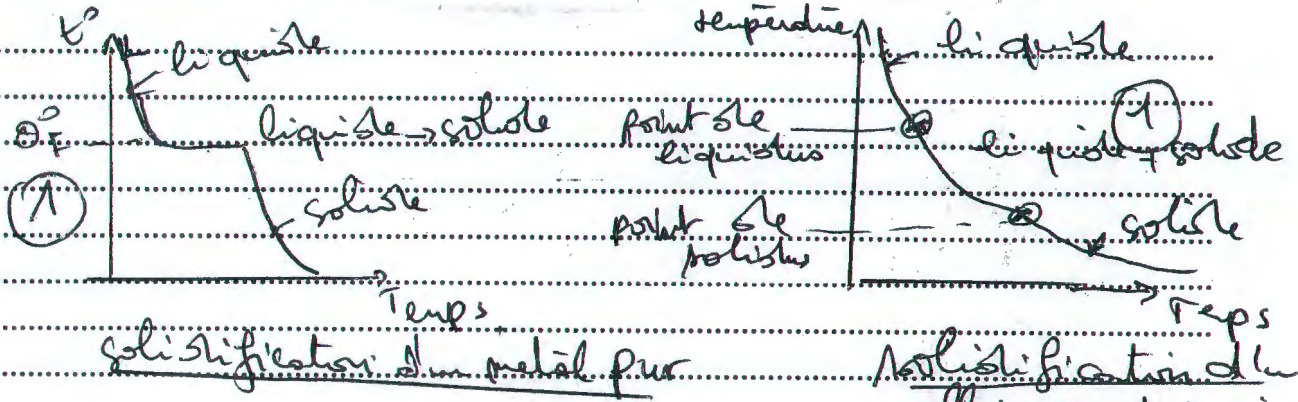 t°
liquide
θ°F
liquide → solide
solide
1
Temps
solidification d'un métal pur
température
liquide
point de
liquidus
1
liquide + solide
point de
solidus
solide
Temps
solidification d'un